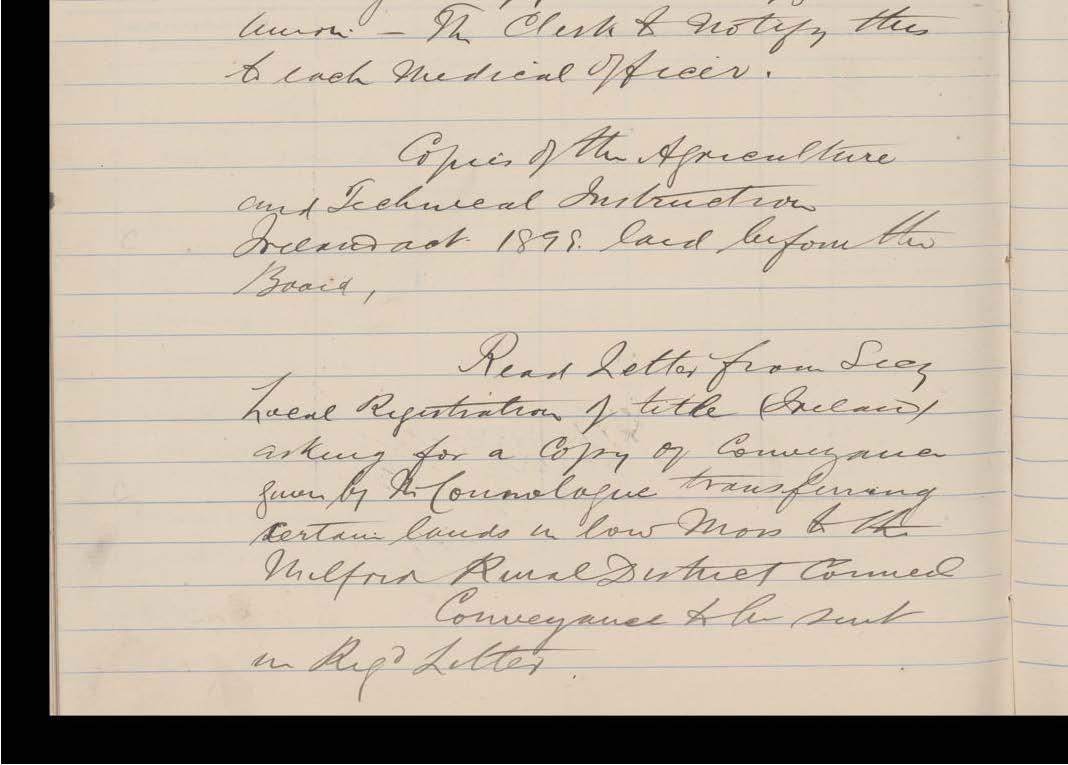 Union. - The Clerk to Notify this
to each Medical Officer.
Copies of the Agriculture
and Technical Instruction
Ireland act 1899. laid before the
Board,
Read Letter from Secy
Local Registration of title (Ireland)
asking for a Copy of Conveyance
given by Mr Connologue transferring
certain lands in low Moss to the
Milford Rural District Council
Conveyance to be sent
in Regd Letter.